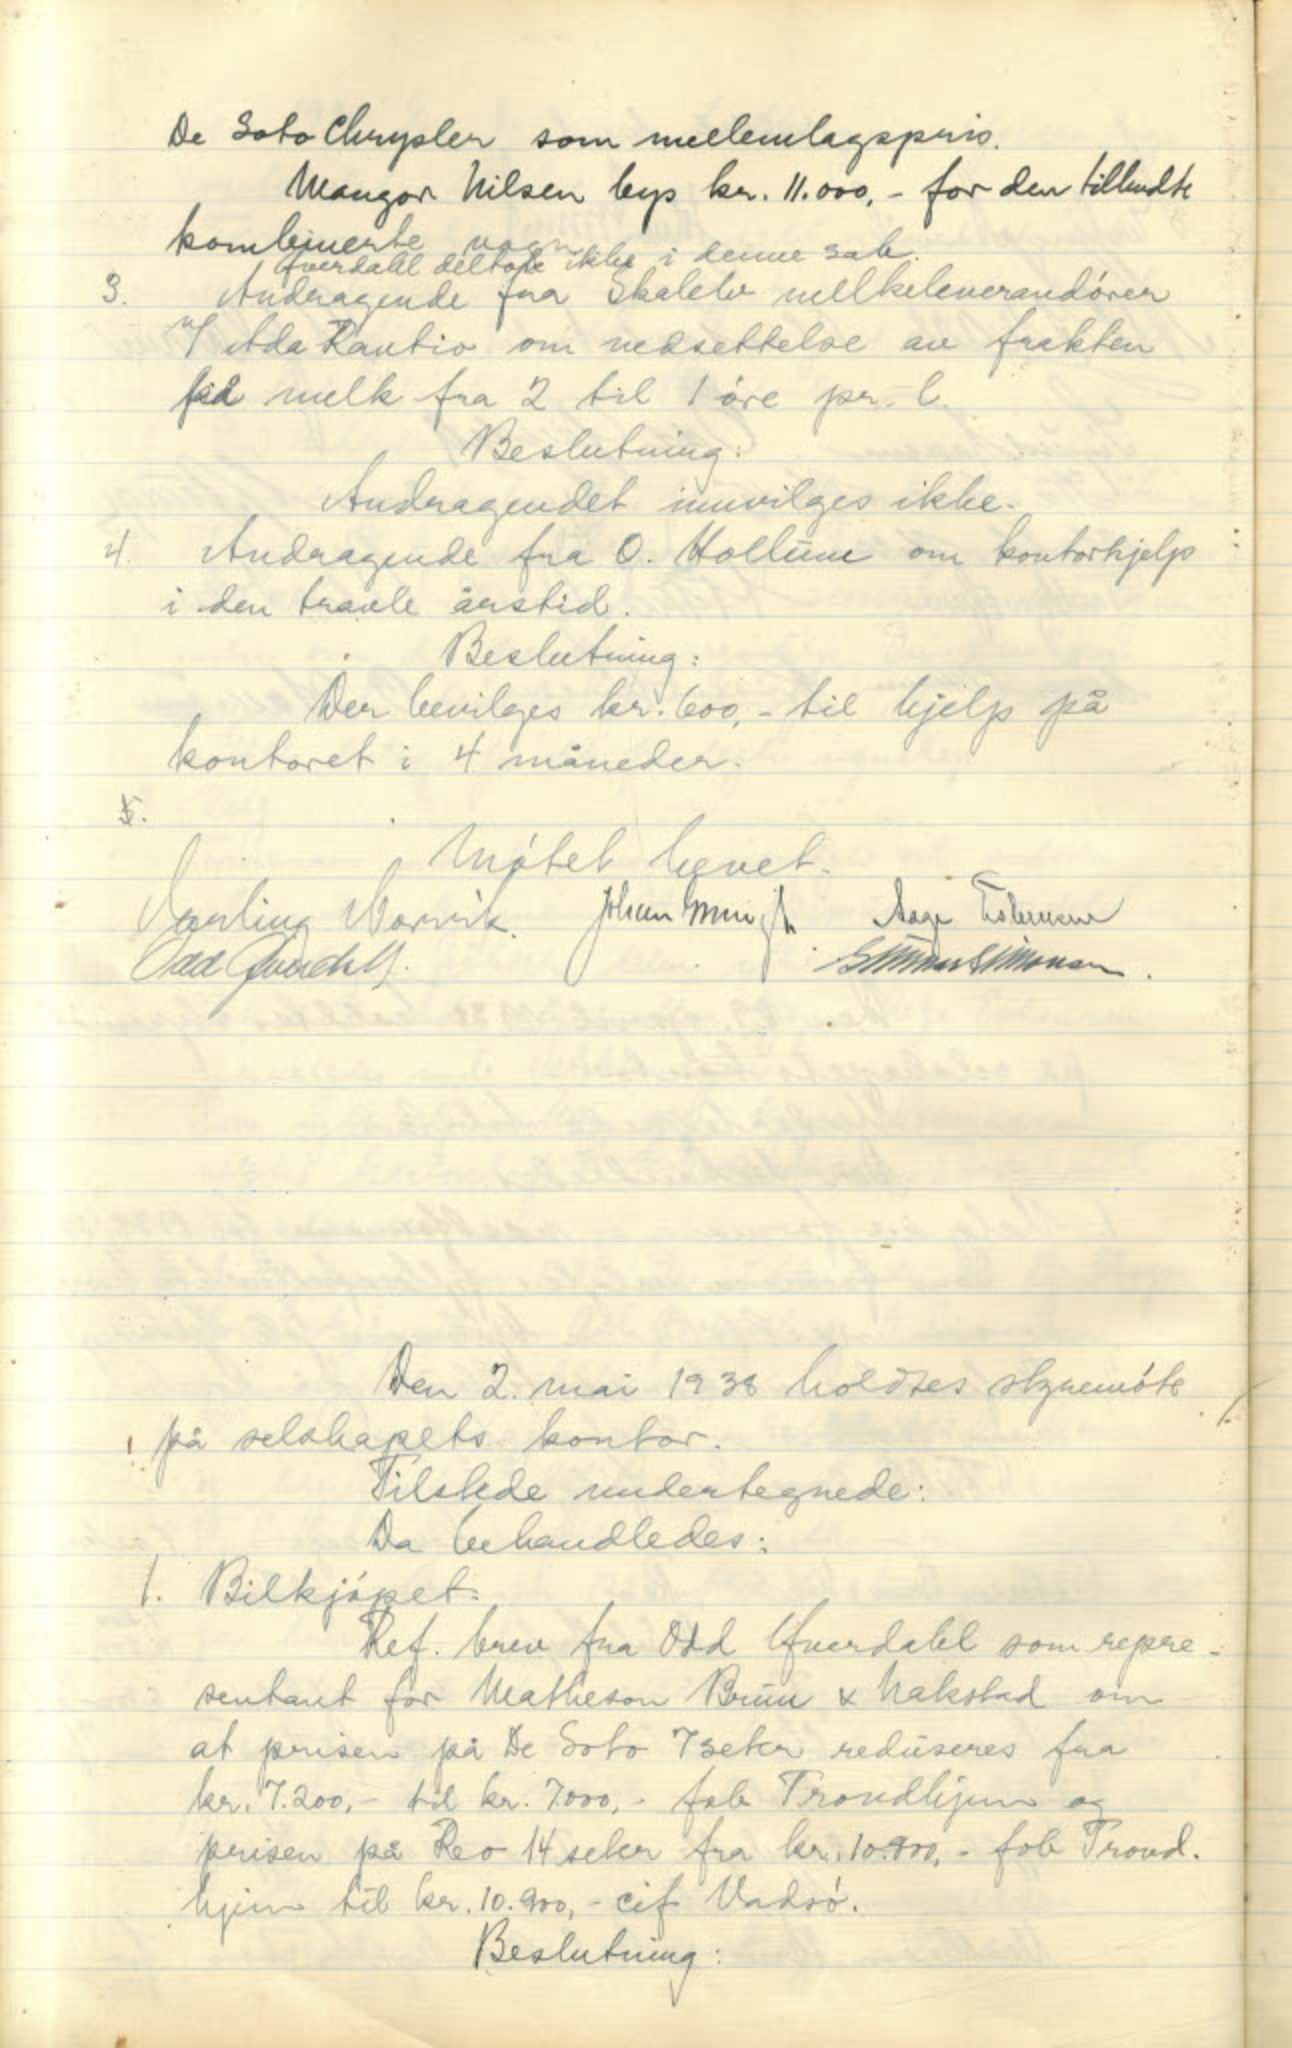 De Soto Chrysler som mellemlagspris.
Mangor Nilsen bys kr. 11.000,- for den tilbudte
kombinerte vogn
Qverdahl deltok ikke i denne sak.
3. Andragende fra Skalelv mellkeleverandører
v/ Ada Rautio om nedsettelse av frakten
på melk fra 2 til 1 øre pr. l.
Beslutning:
Andragendet innvilges ikke.
4. Andragende fra O. Hollum om kontorhjelp
i den travle årstid.
Beslutning:
Der bevilges kr. 600,- til hjelp på
kontoret i 4 måneder.
5.
Møtet hevet.
Norvik. Johan Aage
Odd Qverdahl. Simonsen.
Den 2. mai 1938 holdtes styremøte
på selskapets kontor.
Tilstede undertegnede:
Da behandledes:
1. Bilkjøpet:
Ref. brev fra Odd Qverdahl som repre-
sentant for Matheson Bruu & Nakstad om
at prisen på De Soto 7 seter reduseres fra
kr. 7.200,- til kr. 7.000,- fob Trondhjem og
prisen på Reo 14 seter fra kr. 10.900,- fob Trond.
hjem til kr. 10.900,- cif Vadsø.
Beslutning: